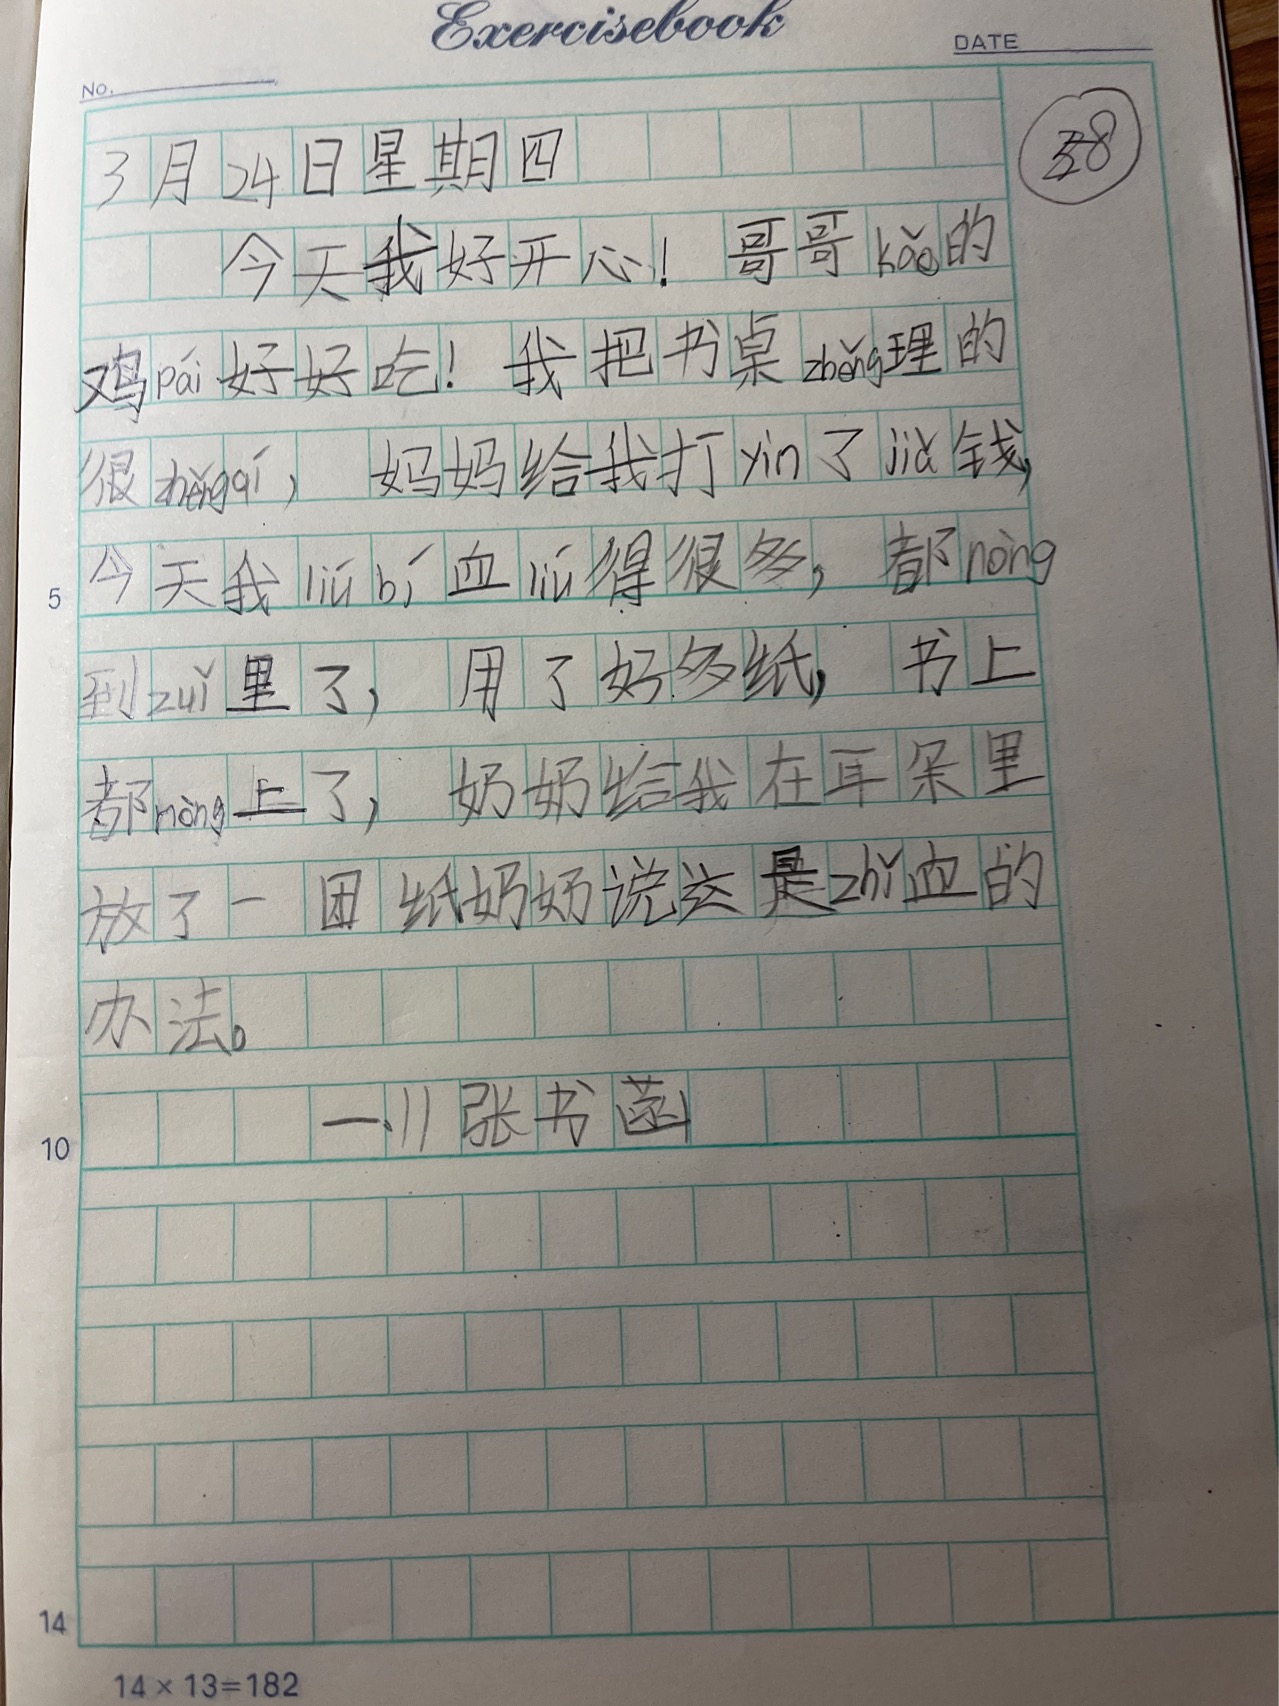 Exercisebook
NO.
DATE
38
3月24日星期四
今天我好开心！哥哥kǎo的
鸡pái好好吃！我把书桌zhěng理的
很zhěngqí，妈妈给我打yìn了jiǎ钱，
今天我liú bí血liú得很多，都nòng
5
到zuǐ里了，用了好多纸，书上
都nòng上了，奶奶给我在耳朵里
放了一团纸奶奶说这是zhǐ血的
办法。
一.11张书菡
10
14
14×13=182